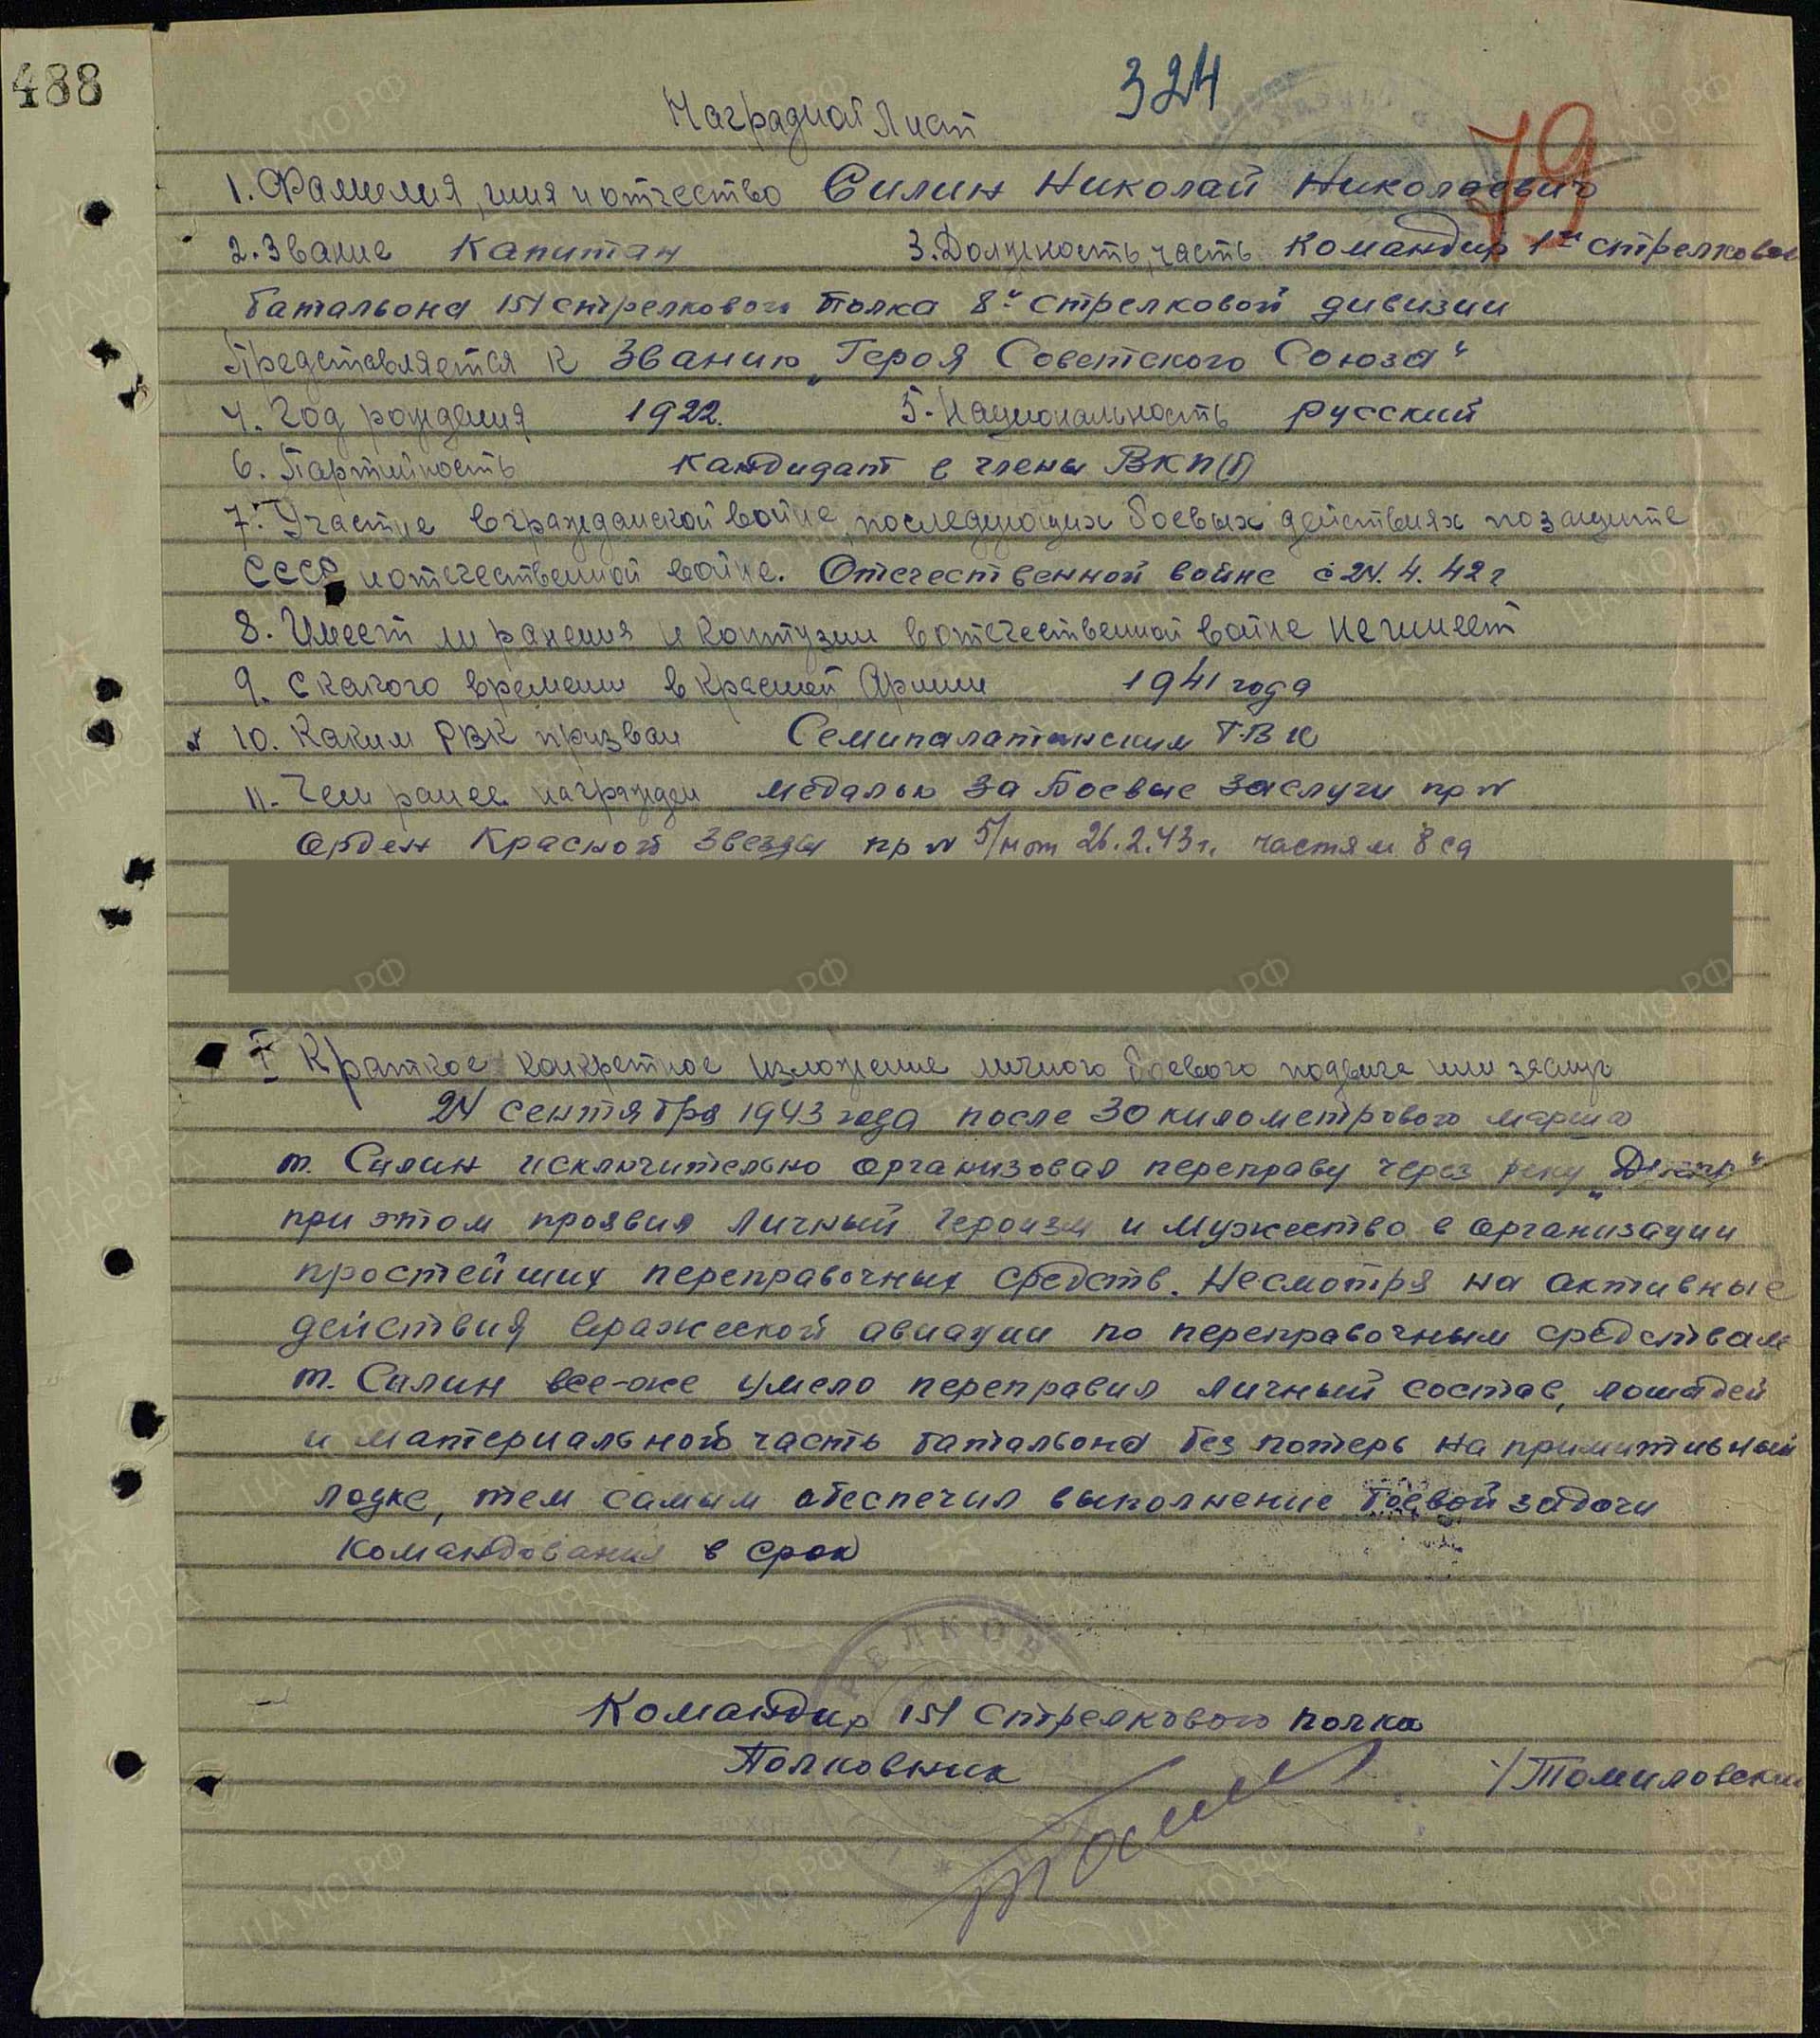 488
324
79
Наградной Лист
1. Фамилия, имя и отчество Силин Николай Николаевич
2. Звание Капитан 3. Должность, часть Командир 1го стрелкового
батальона 151 стрелкового полка 8й стрелковой дивизии
Представляется к званию „Героя Советского Союза"
4. Год рождения 1922. 5. Национальность русский
6. Партийность кандидат в члены ВКП(б)
7. Участие в гражданской войне, последующих боевых действиях по защите
СССР и отечественной войне. Отечественной войне с 24.4.42 г
8. Имеет ли ранения и контузии в отечественной войне не имеет
9. С какого времени в Красной Армии 1941 года
10. Каким РВК призван Семипалатинским ГВК
11. Чем ранее награжден медалью За Боевые заслуги пр №
Орден Красной Звезды пр № 5/н от 26.2.43 г. частям 8 сд
I Краткое конкретное изложение личного боевого подвига или заслуг
24 сентября 1943 года после 30 километрового марша
т. Силин исключительно организовал переправу через реку „Днепр"
при этом проявил личный героизм и мужество в организации
простейших переправочных средств. Несмотря на активные
действия вражеской авиации по переправочным средствам
т. Силин все-же умело переправил личный состав, лошадей
и материальной часть батальона без потерь на примитивный
лодке, тем самым обеспечил выполнение боевой задачи
командования в срок
Командир 151 Стрелкового полка
Полковник /Томиловский